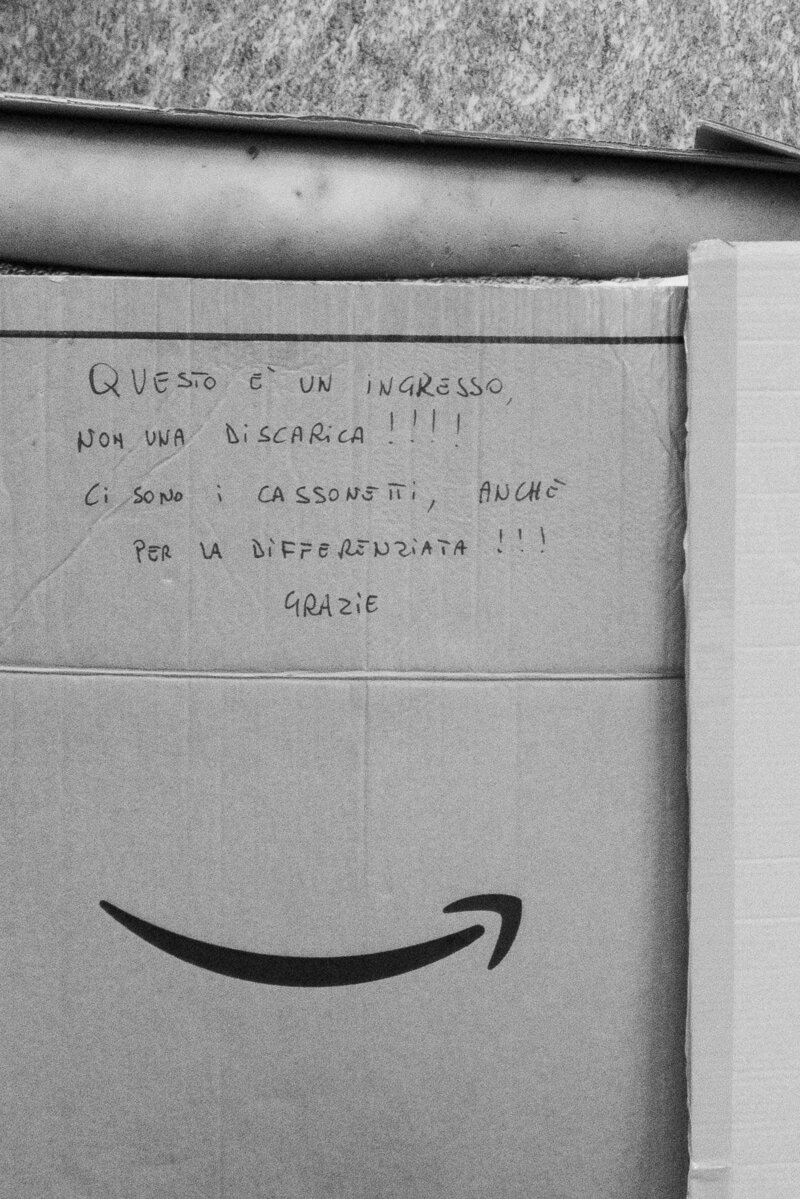 QUESTO E' UN INGRESSO,
NON UNA DISCARICA !!!!
Ci SONO i CASSONETTi, ANCHE
PER LA DIFFERENZIATA !!!
GRAZIE